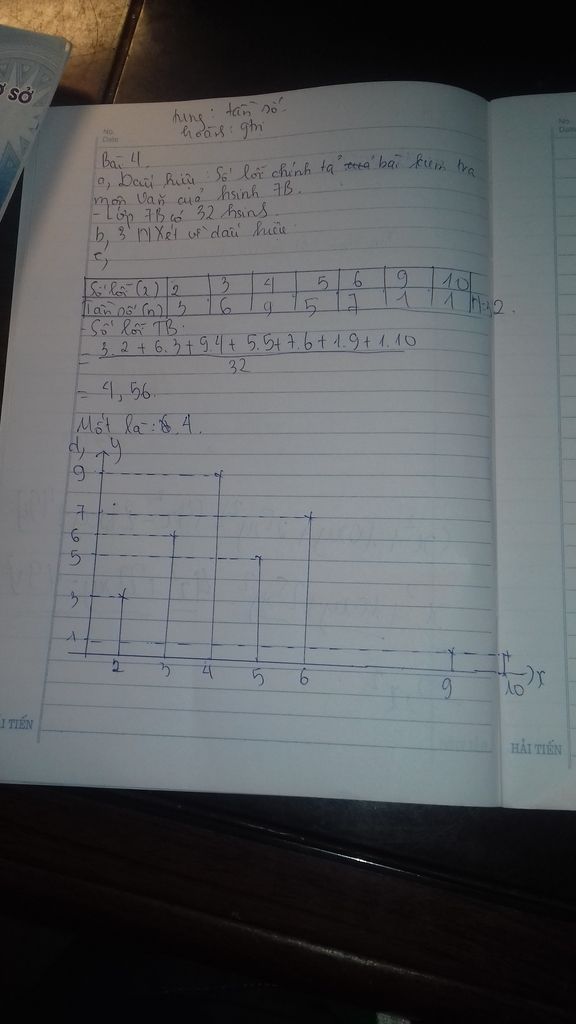 Ở SỞ
tung: tần số
hoành: gtrị
No.
Date
No.
Date
Bài 4.
a, Dấu hiệu: Số lỗi chính tả bài kiểm tra
môn Văn của hsinh 7B.
- Lớp 7B có 32 hsinh.
b, 3 N/Xét về dấu hiệu.
c,
Số lỗi (x) 2 3 4 5 6 9 10
Tần số (n) 3 6 9 5 7 1 1 N=32.
- Số lỗi TB:
= 3.2 + 6.3 + 9.4 + 5.5 + 7.6 + 1.9 + 1.10
32
= 4,56.
Mốt là: 4.
d, y
9
7
6
5
3
1
2 3 4 5 6 9 10 x
HẢI TIẾN
HẢI TIẾN